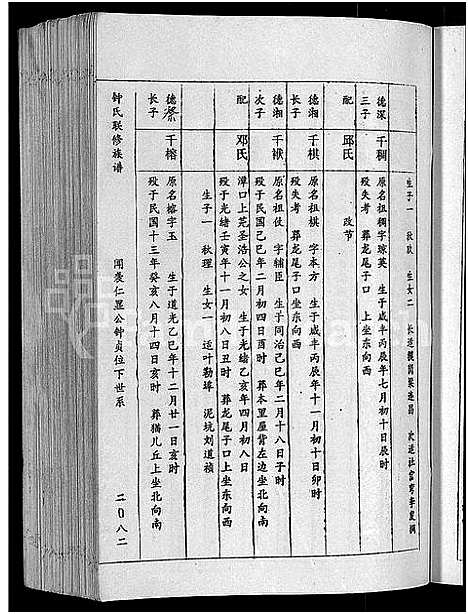 生子一 秋 生女二 长适 梁连昌 次适社宫
德深 三子 千稠 原名祖稠字琼英 生于咸丰丙辰年七月初十日辰时
殁失考 葬龙尾子口 上坐东向西
配 邱氏 改节
德湘 长子 千棋 原名祖棋 字本方 生于咸丰丙辰年十一月初十日卯时
殁失考 葬龙尾子口坐东向西
德湘 次子 千袱 原名祖伏 字辅臣 生于同治己巳年二月十八日子时
殁于民国己巳年二月初四日亥时 葬本里屋背左边坐北向南
配 邓氏 漳口上芫圣浩公之女 生于光绪乙亥年四月初八日
殁于光绪壬寅年十一月初八日丑时 葬龙尾子口上坐东向西
生子一 秋理 生女一 适叶勒埠 泥坑刘道禎
德崇 长子 千榕 原名榕字玉 生于道光乙巳年十二月廿一日亥时
殁于民国十三年癸亥八月十四日亥时 葬猫儿丘上坐北向南
钟氏联修族谱 闻爱仁置公钟贞位下世系 二〇八二